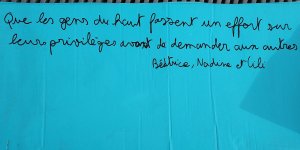 Que les gens du haut fassent un effort sur
leurs privilèges avant de demander aux autres
Béatrice, Nadine et Lili